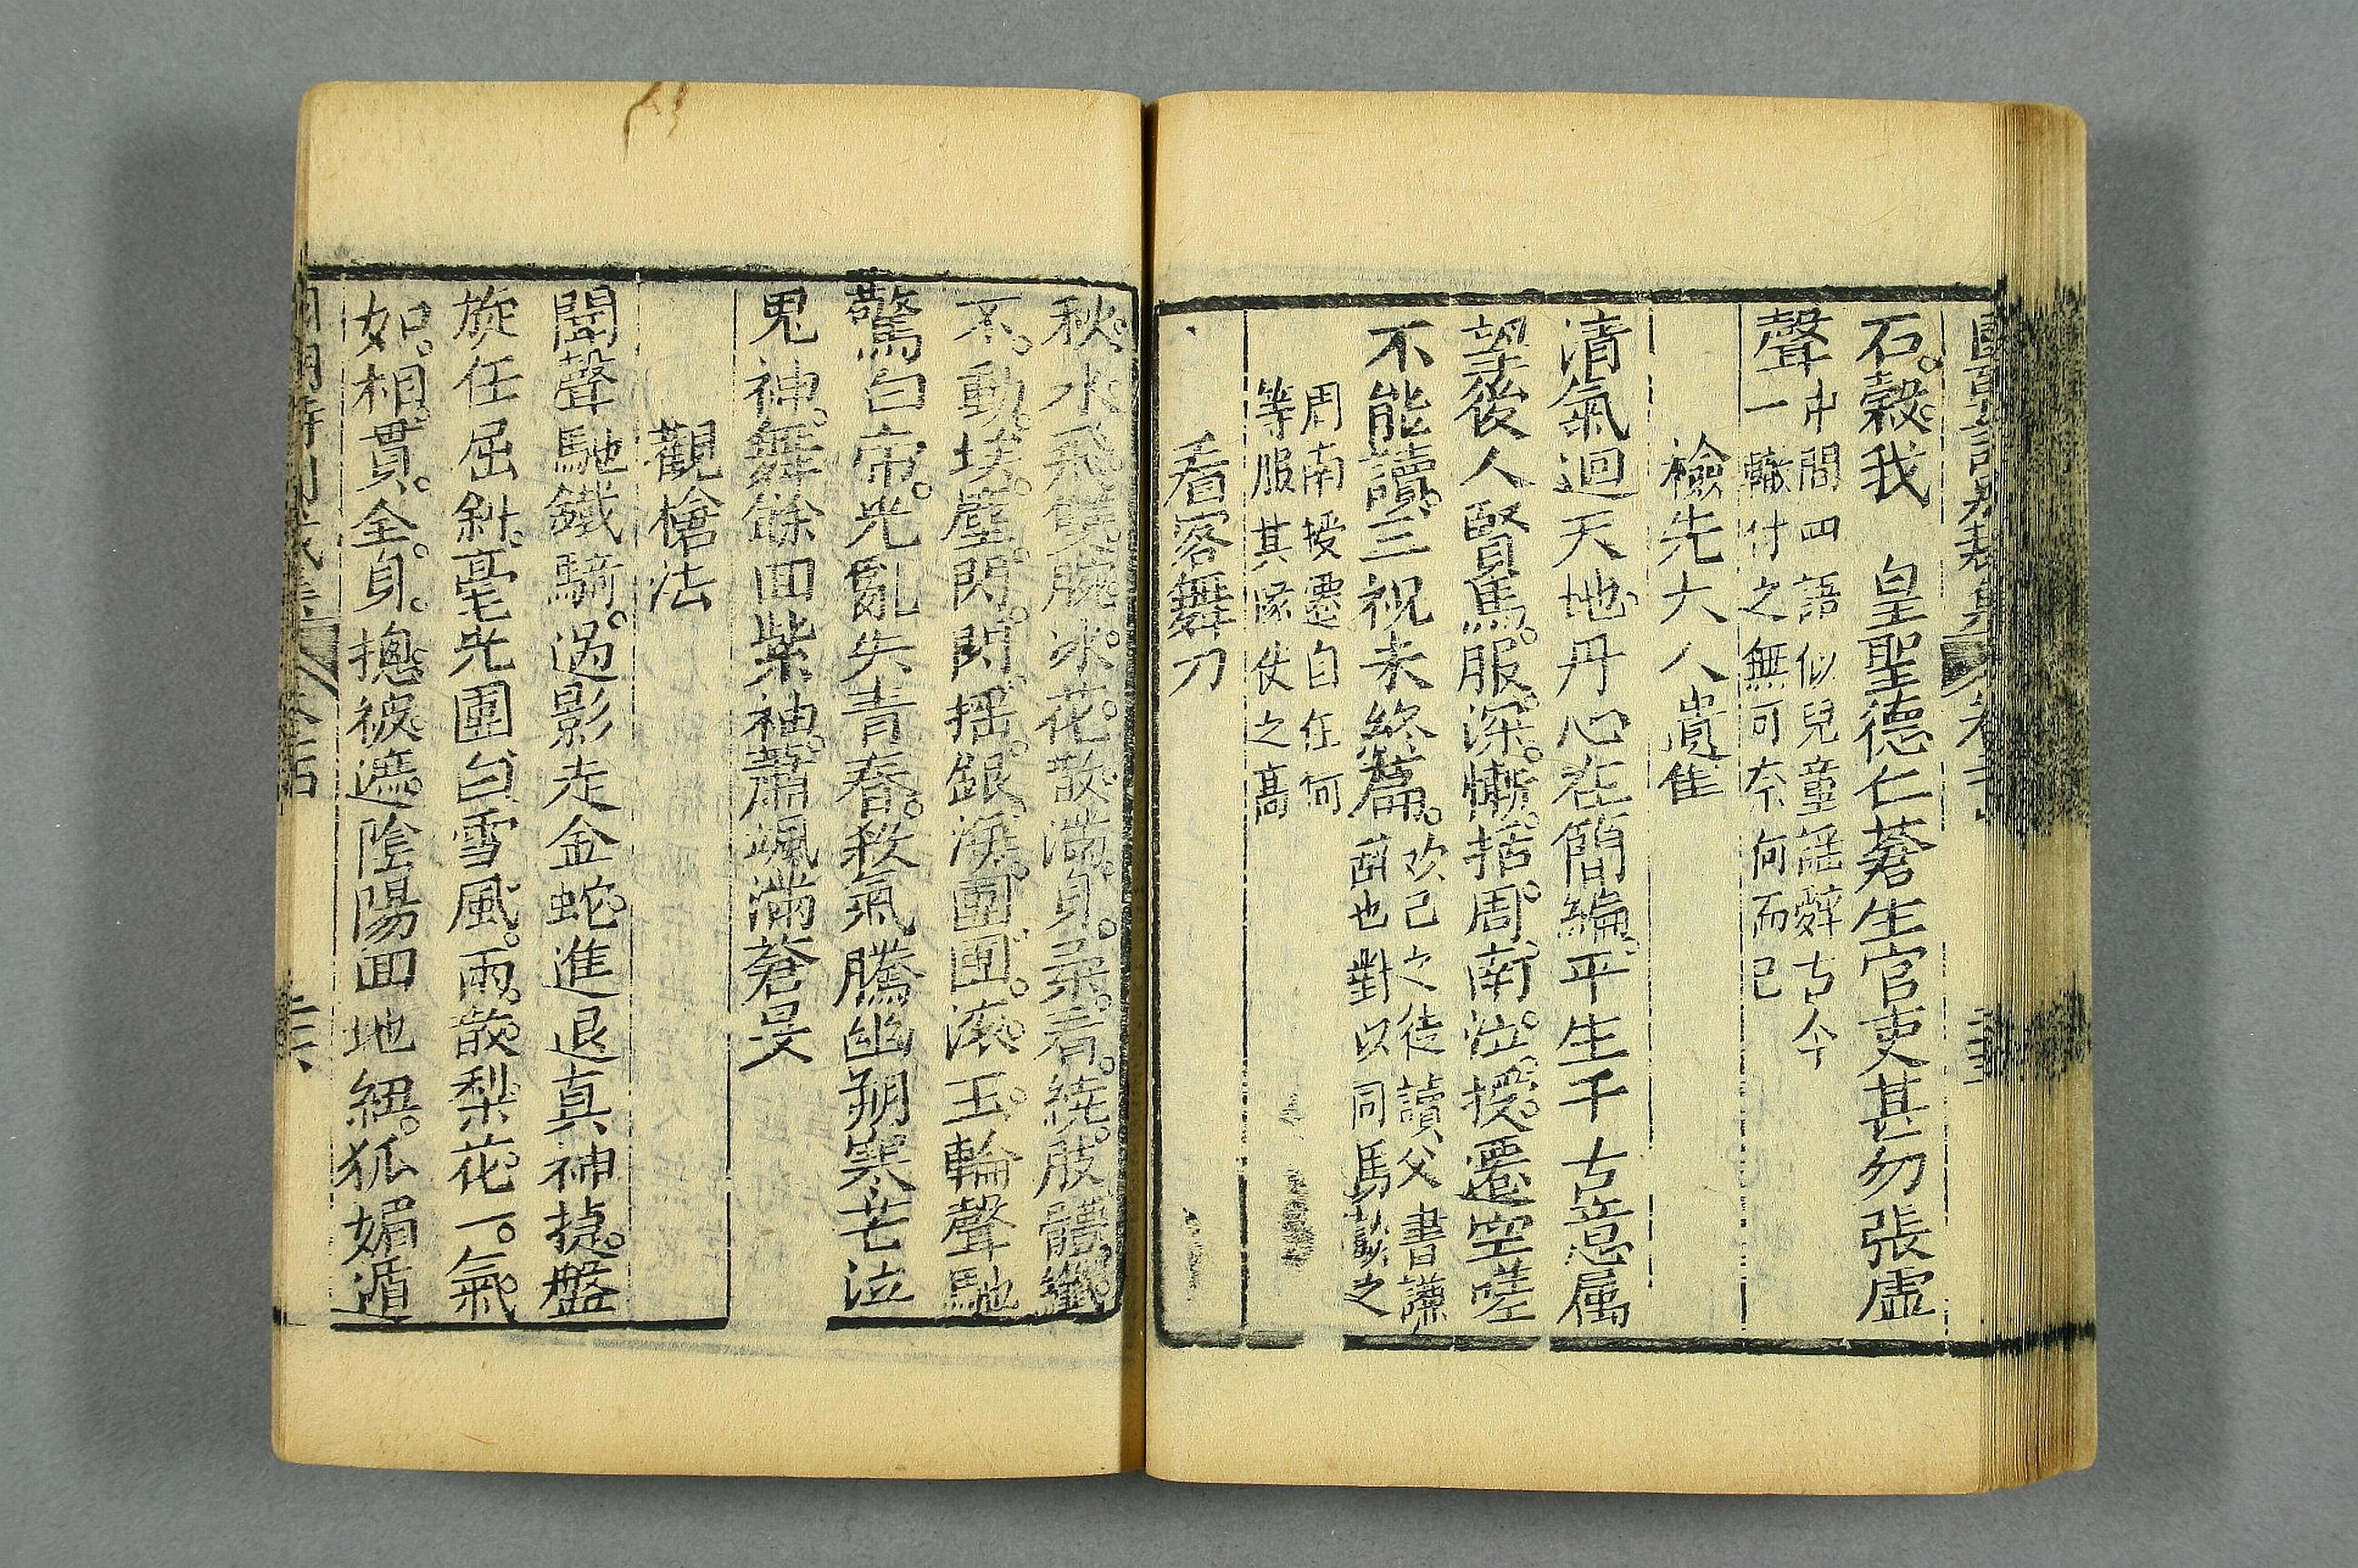 石穀我　皇聖德仁蒼生官吏甚勿張虛
聲
中間四語似兒童謡辭古今
一轍付之無可奈何而已
檢先大人遺隹
清氣迴天地丹心在簡編平生千古意属
望後人賢馬服深慚括周南泣授遷空嗟
不能讀三祝未終篇
欢己之徒讀父書謙
而也對以同馬彪之
周南授遷自任何
等服其隊伎之高
看客舞刀
秋水飛饒腕冰花散滿身柔看繞肢體纖
不動埃塵閃閃揺銀海團團滚玉輪聲馳
驚白帝光亂失青春殺氣騰幽朔寒芒泣
鬼神舞餘回紫袖蕭颯滿蒼旻
觀槍法
聞聲馳鐵騎過影走金蛇進退真神捷盤
旋任屈斜毫光團白雪風雨散梨花一氣
如相貫全身摠被遮陰陽回地紐狐媚遁